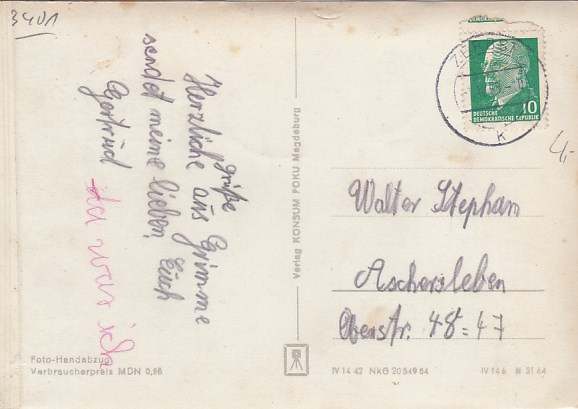 3401
Herzliche grüße
aus Grimme
sendet meine lieben, Euch
Gertrud
da war ich
Foto-Handabzug
Verbraucherpreis MDN 0,56
Verlag KONSUM FOKU Magdeburg
10
DEUTSCHE
DEMOKRATISCHE REPUBLIK
4,-
Walter Stepham
Aschersleben
Obenstr. 48=47
IV 14 42 NkG 208 49 64
IV 14 6 M 31 64